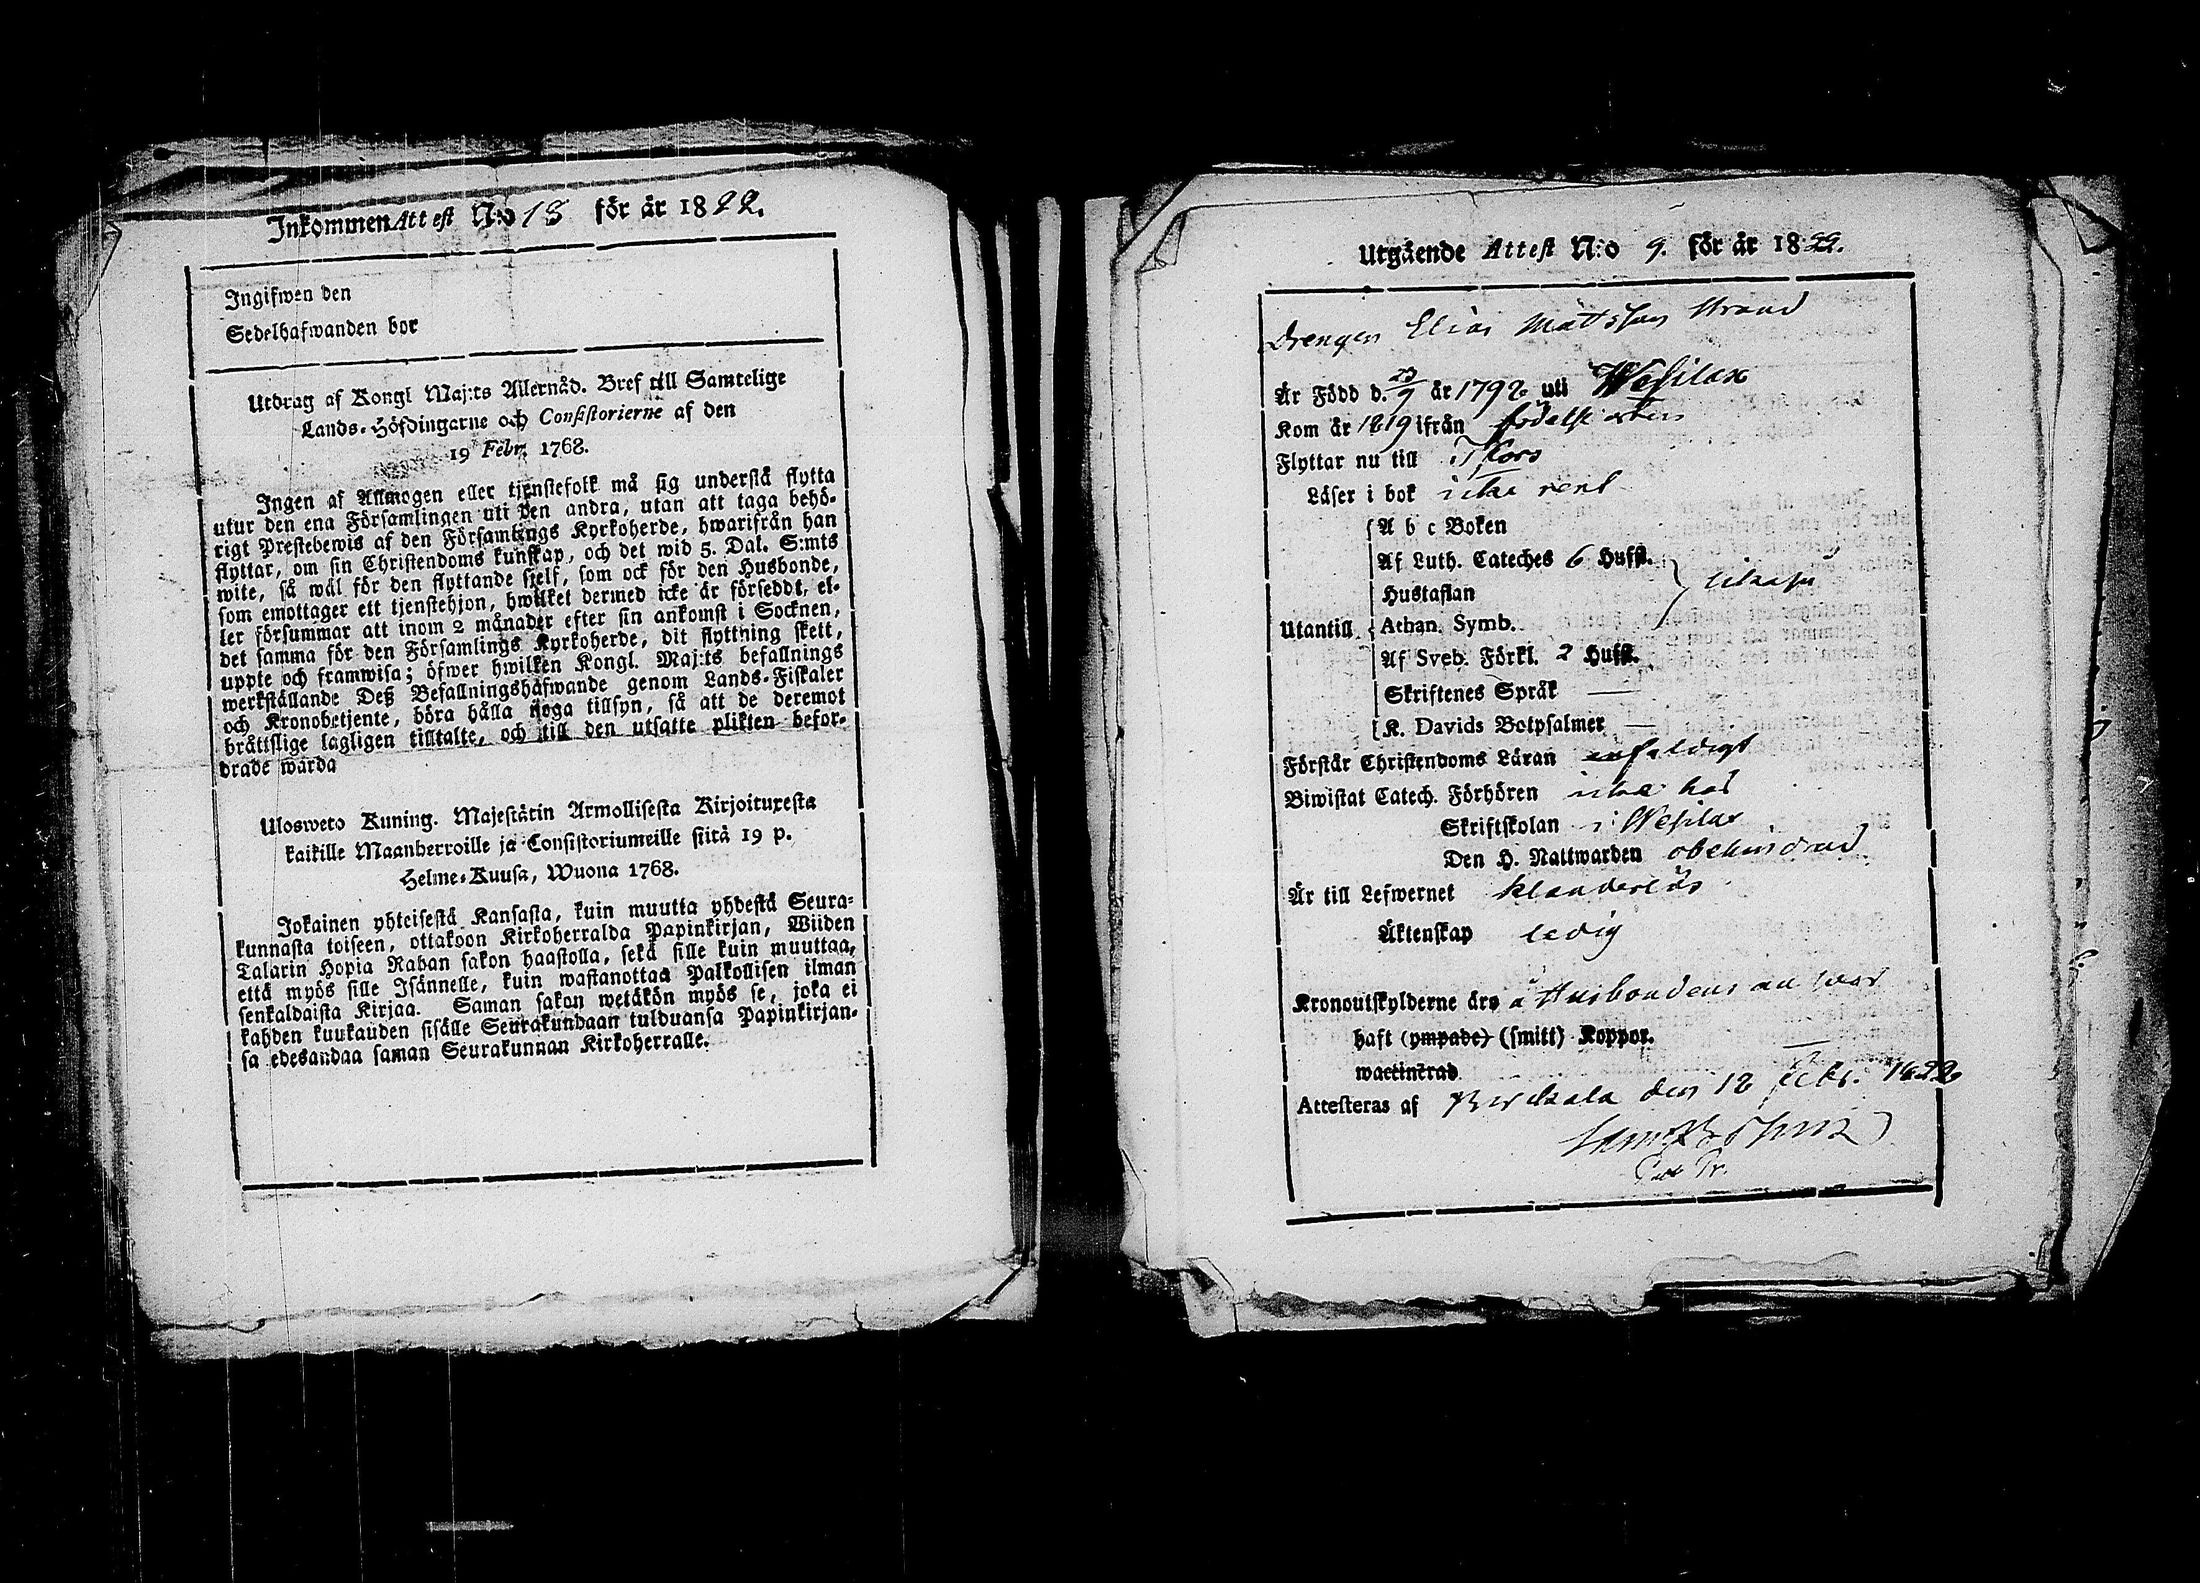 Inkommen Attest N:o 18 för år 1822.
Ingifwen den
Sedelhafwanden bor
Utdrag af Kongl Maj:ts Allernåd. Bref till Samtelige
Lands-Höfdingarne och Consistorierne af den
19 Febr. 1768.
Ingen af Allmogen eller tjenstefolk må sig understå flytta
utur den ena Församlingen uti den andra, utan att taga behö-
rigt Prestebewis af den Församlings Kyrkoherde, hwarifrån han
flyttar, om sin Christendoms kunskap, och det wid 5. Dal. S:mts
wite, så wäl för den flyttande sjelf, som ock för den Husbonde,
som emottager ett tjenstehjon, hwilket dermed icke är försedt, el-
ler försummar att inom 2 månader efter sin ankomst i Socknen,
det samma för den Församlings Kyrkoherde, dit flyttning skett,
uppte och framwisa; öfwer hwilken Kongl. Maj:ts befallnings
werkställande Deß Befallningshafwande genom Lands-Fiskaler
och Kronobetjente, böra hålla noga tillsyn, så att de deremot
bråttslige lagligen tilltalte, och till den utsatte plikten befor-
drade warda
Ulosweto Kuning. Majestätin Armollisesta Kirjoituxesta
kaikille Maanherroille ja Consistoriumeille siitä 19 p.
Helme-Kuusa, Wuona 1768.
Jokainen yhteisestä Kansasta, kuin muutta yhdestä Seura-
kunnasta toiseen, ottakoon Kirkoherralda Papinkirjan, Wiiden
Talarin Hopia Rahan sakon haastolla, sekä sille kuin muuttaa,
että myös sille Isännelle, kuin wastanottaa Palkollisen ilman
senkaldaista Kirjaa. Saman sakon wetäkön myös se, joka ei
kahden kuukauden sisälle Seurakundaan tulduansa Papinkirjan-
sa edesandaa saman Seurakunnan Kirkoherralle.
Utgående Attest N:o 9. för år 1822.
Drengen Elias Mattsson Strand
Är Född d. 23/9 år 1792 uti Wesilax
Kom år 1819 ifrån födelse orten
Flyttar nu till Tfors
Läser i bok icke rent
A b c Boken
Af Luth. Cateches 6 Hufst.
Hustaflan
Utantill Athan. Symb.
Af Sveb. Förkl. 2 Hufst.
Skriftenes Språk —
K. Davids Botpsalmer —
Förstår Christendoms Läran enfaldigt
Biwistat Catech. Förhören icke här
Skriftskolan i Wesilax
Den H. Nattwarden obehindrad
Är till Lefwernet klanderlös
Äktenskap ledig
Kronoutskylderne äro å Husbondens answar
haft (ympade) (smitt) Koppor.
waccinerad
Attesteras af Birckala den 18 Febr. 1822